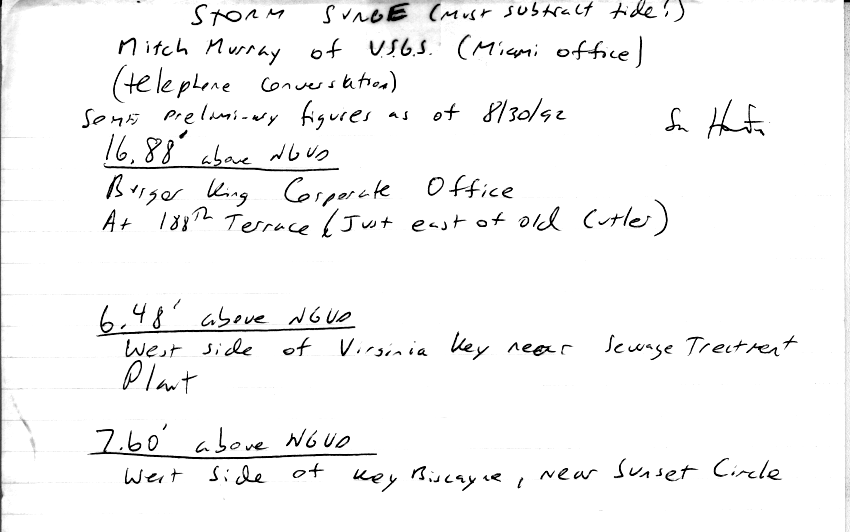 STORM SURGE (Must subtract tide!)
Mitch Murray of U.S.G.S. (Miami office)
(telephone conversation)
Some preliminary figures as of 8/30/92
16.88' above NGVD
Burger King Corporate Office
At 188th Terrace (Just east of old Cutler)
6.48' above NGVD
West side of Virginia Key near Sewage Treatment
Plant
7.60' above NGVD
West side of Key Biscayne, near Sunset Circle